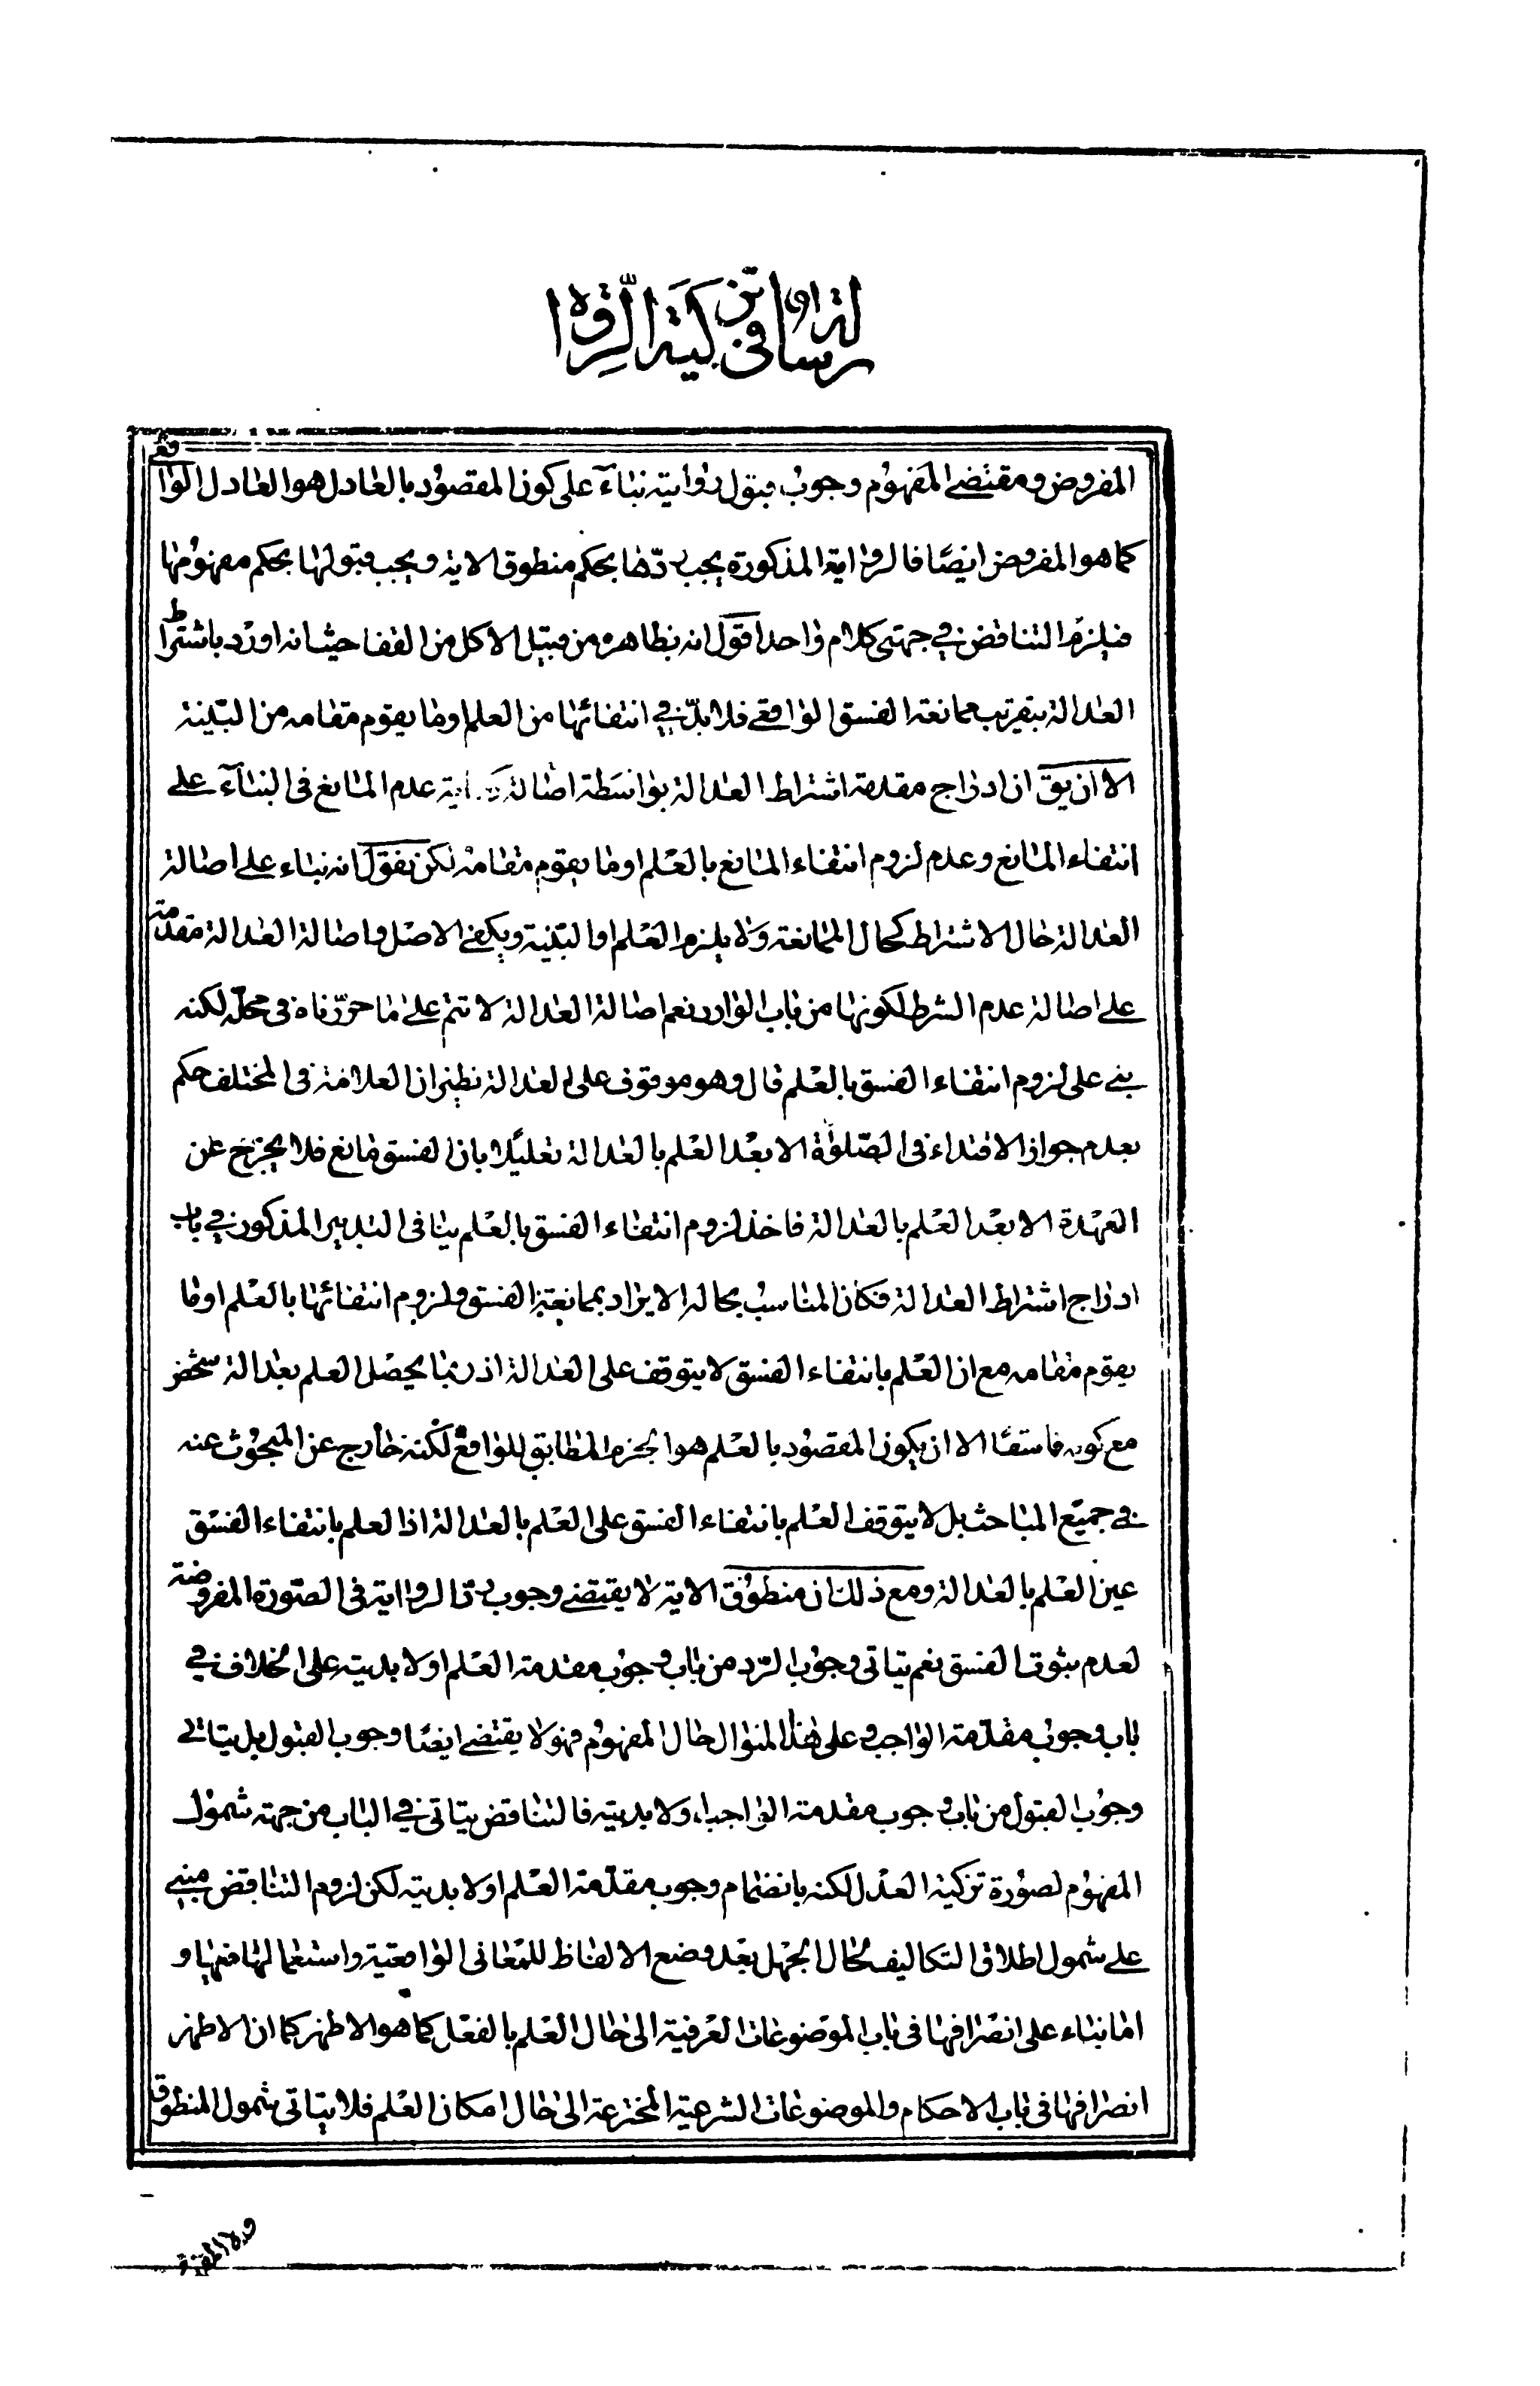 رسالة في تزكية الرواة
المفروض ومقتضى المفهوم وجوب قبول روايته بناءً على كون المقصود بالعادل هو العادل الواقعى
كما هو المفروض ايضًا فالرواية المذكورة يجب ردّها بحكم منطوق الاية ويجب قبولها بحكم مفهومها
فيلزم التناقض فى جهتى كلام واحد اقول انه بظاهره من قبيل الاكل من القفا حيث انه اورد باشتراط
العدالة بتقريب ممانعة الفسق الواقعى فلا بدّ فى انتفائها من العلم او ما يقوم مقامه من البيّنة
الا ان يق ان ادراج مقدمة اشتراط العدالة بواسطة اصالة عدم المانع فى البناء على
انتفاء المانع وعدم لزوم انتفاء المانع بالعلم او ما يقوم مقامه لكن نقول انه بناء على اصالة
العدالة حال الاشتراط كحال الممانعة ولا يلزم العلم او البيّنة ويكفى الاصل واصالة العدالة مقدمة
على اصالة عدم الشرط لكونها من باب الوارد نعم اصالة العدالة لا تتم على ما حرّرناه فى محلّه لكنه
بنى على لزوم انتفاء الفسق بالعلم قال وهو موقوف على العدالة نظير ان العلامة فى المختلف حكم
بعدم جواز الاقتداء فى الصّلوة الا بعد العلم بالعدالة تعليلًا بان الفسق مانع فلا يخرج عن
العهدة الا بعد العلم بالعدالة فاخذ لزوم انتفاء الفسق بالعلم ينافى التدبير المذكور فى باب
ادراج اشتراط العدالة فكان المناسب بحاله الايراد بممانعة الفسق ولزوم انتفائها بالعلم او ما
يقوم مقامه مع ان العلم بانتفاء الفسق لا يتوقف على العدالة اذ ربما يحصل العلم بعدالة شخص
مع كونه فاسقًا الا ان يكون المقصود بالعلم هو الجزم المطابق للواقع لكنه خارج عن المبحوث عنه
فى جميع المباحث بل لا يتوقف العلم بانتفاء الفسق على العلم بالعدالة اذ العلم بانتفاء الفسق
عين العلم بالعدالة ومع ذلك ان منطوق الاية لا يقتضى وجوب ردّ الرواية فى الصّورة المفروضة
لعدم ثبوت الفسق نعم يتاتى وجوب الرّد من باب وجوب مقدمة العلم او لا بديته على الخلاف فى
باب وجوب مقدّمة الواجب وعلى هذا المنوال حال المفهوم فهو لا يقتضى ايضًا وجوب القبول بل يتاتى
وجوب القبول من باب وجوب مقدمة الواجب او لا بديته فالتناقض يتاتى فى الباب من جهة شمول
المفهوم لصورة تزكية العدل لكنه بانضمام وجوب مقدّمة العلم او لا بديته لكن لزوم التناقض مبنى
على شمول اطلاق التكاليف لحال الجهل بعد وضع الالفاظ للمعانى الواقعية واستعمالها فيها و
اما بناء على انصرافها فى باب الموضوعات العرفية الى حال العلم بالفعل كما هو الاظهر كما ان الاظهر
انصرافها فى باب الاحكام والموضوعات الشرعية المخترعة الى حال امكان العلم فلا يتاتى شمول المنطوق